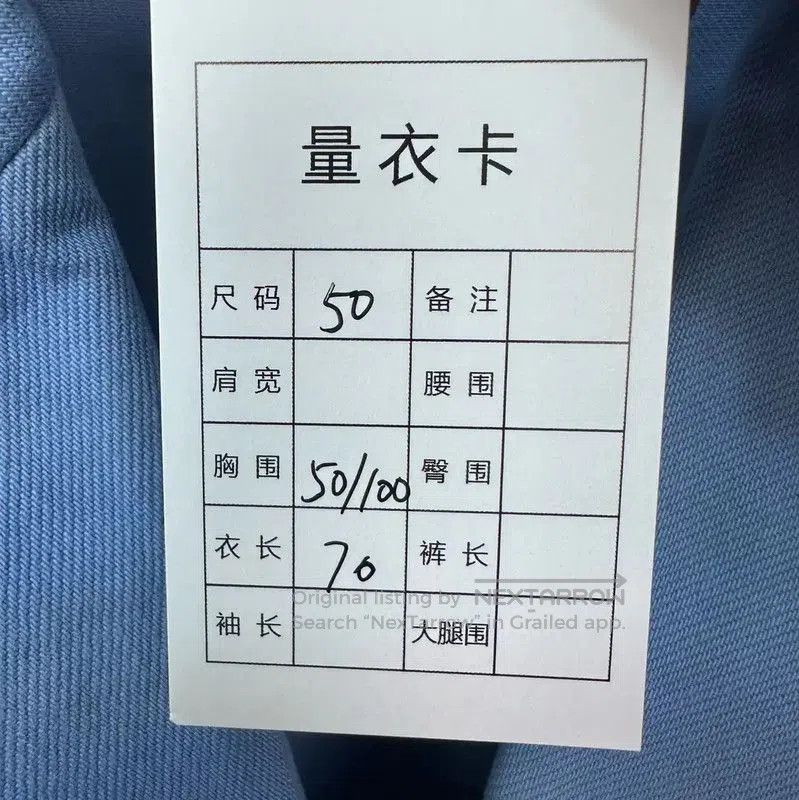 量衣卡
尺码 50 备注
肩宽 腰围
胸围 50/100 臀围
衣长 70 裤长
袖长 大腿围
Original listing by NEXTARROW
Search "NexTarrow" in Grailed app.